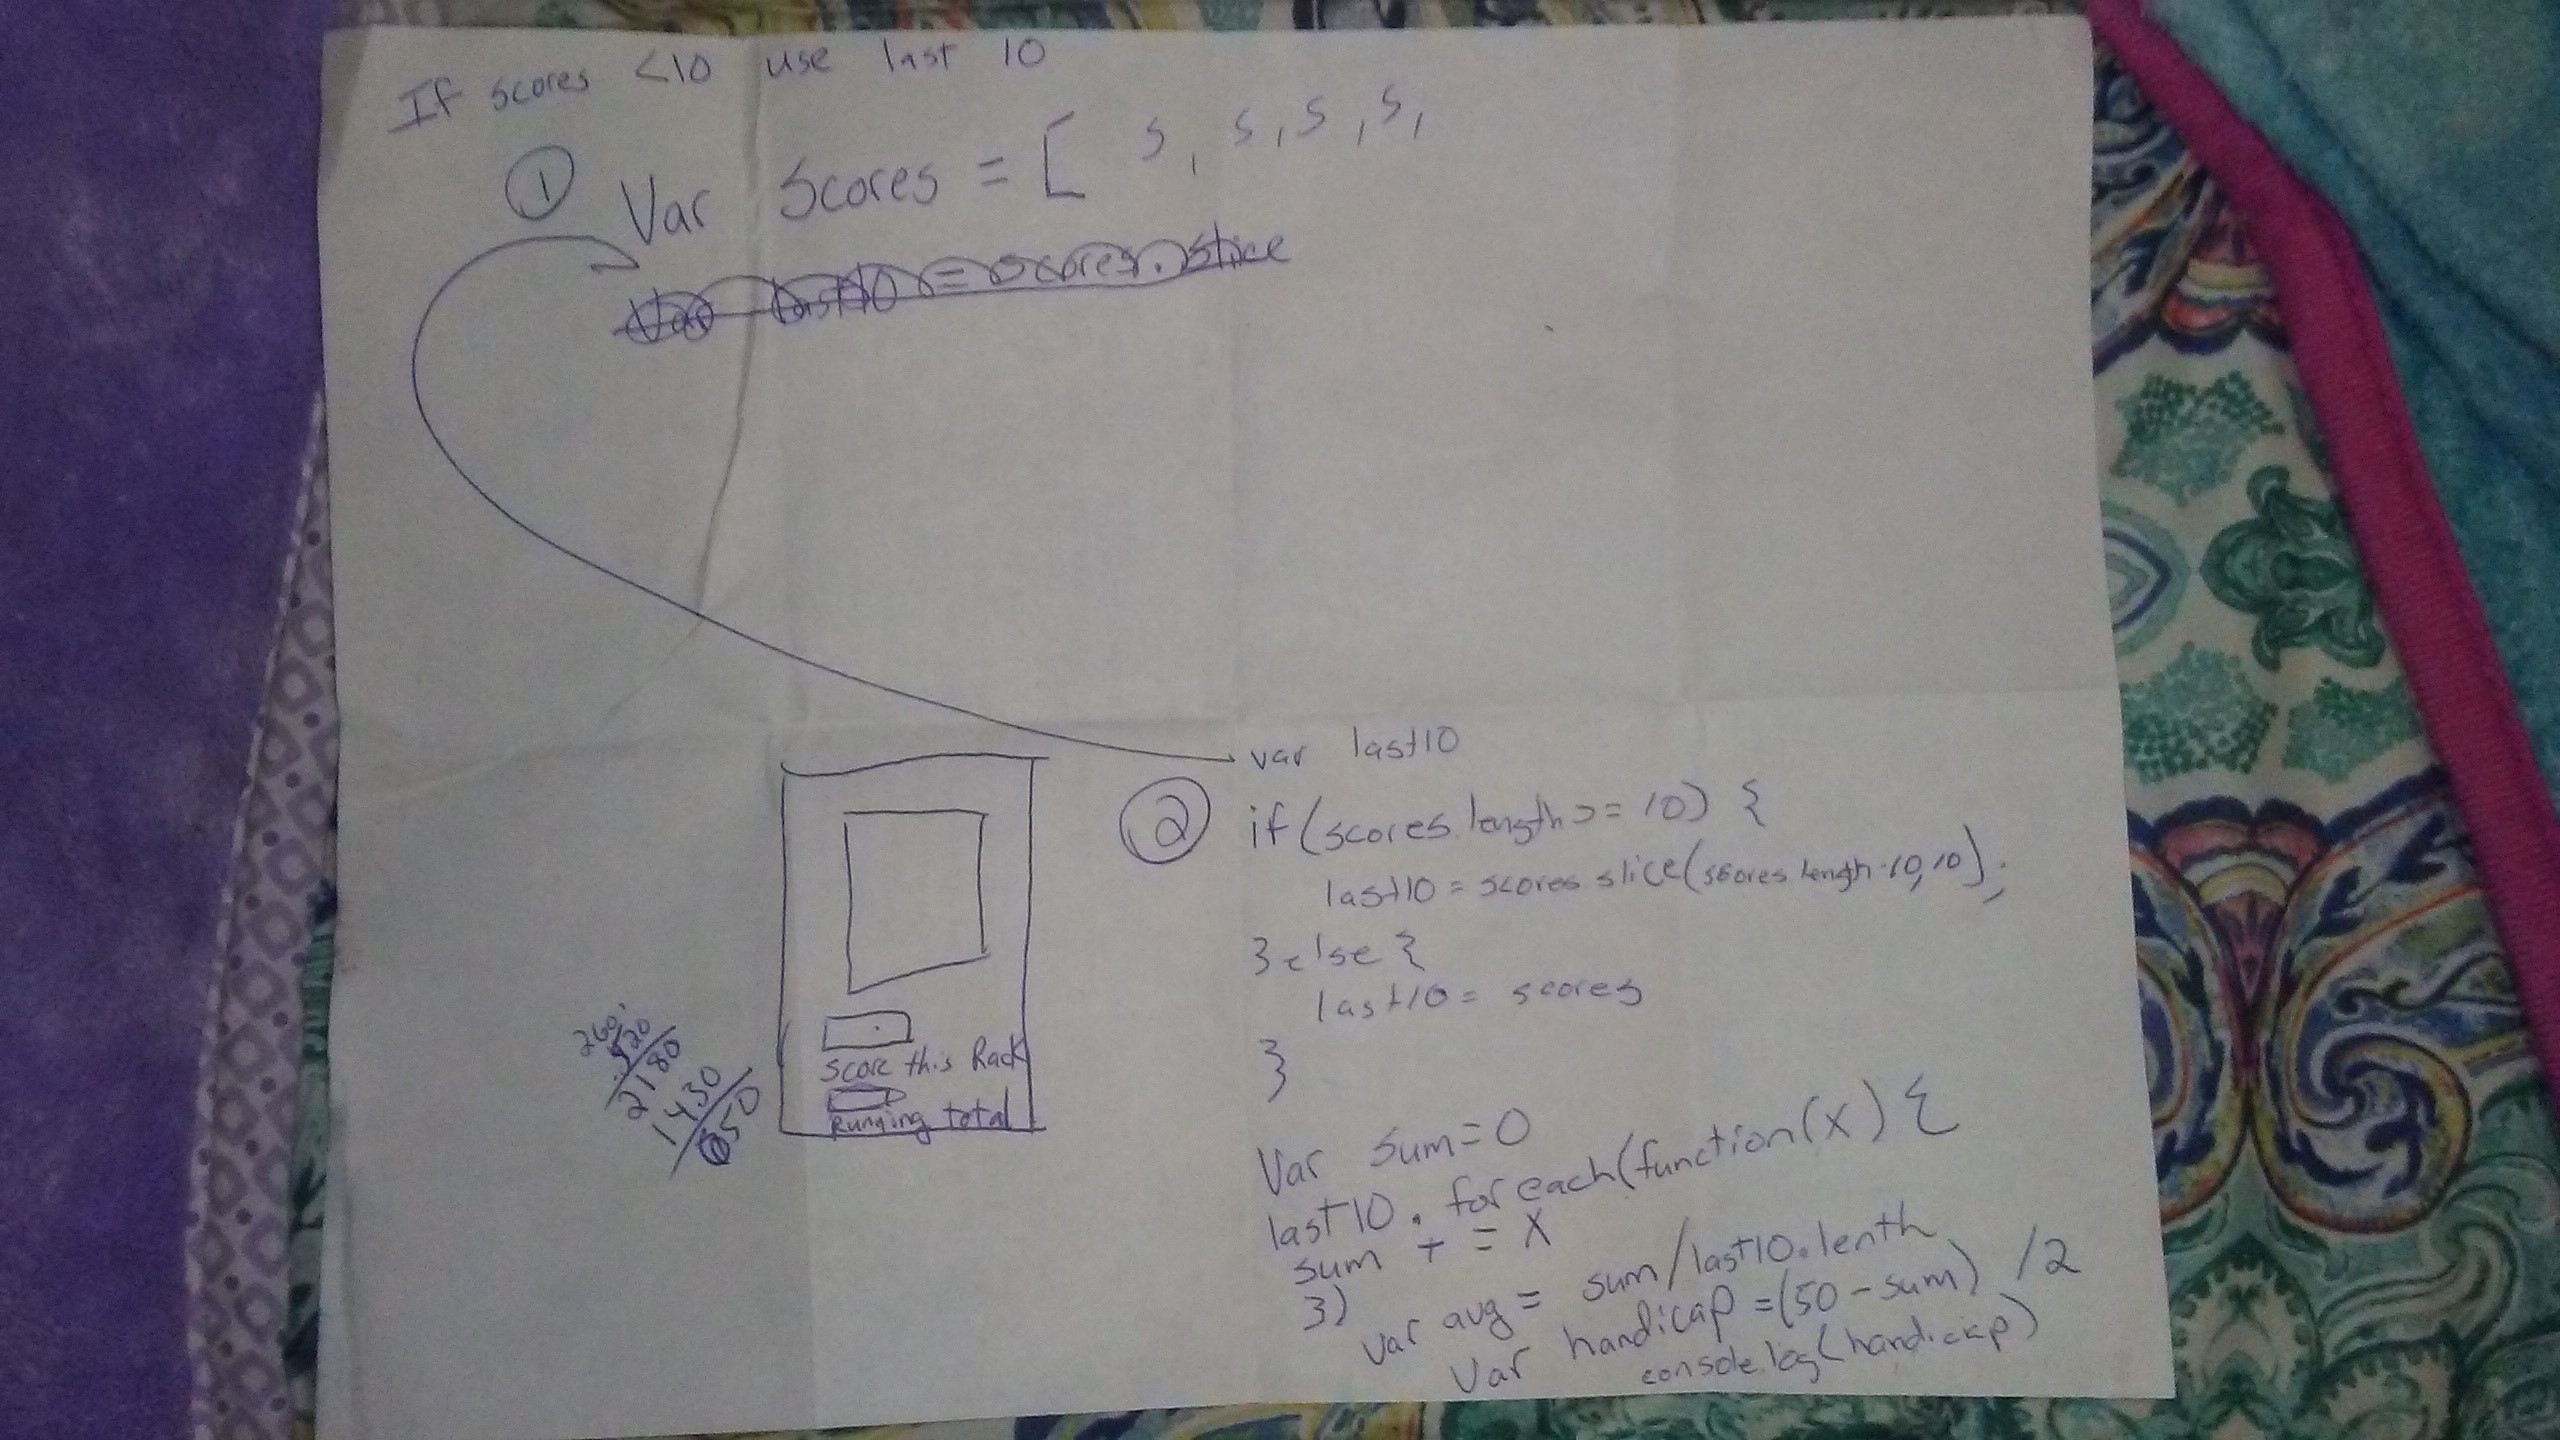 If scores <10 use last 10
① Var Scores = [ s, s, s, s,
Var last10 = scores.slice
var last10
② if(scores.length >= 10) {
last10 = scores.slice(scores.length-10,10);
} else {
last10 = scores
}
Var sum=0
last10.foreach(function(x) {
sum += x
})
var avg = sum/last10.lenth
Var handicap =(50-sum) /2
console.log(handicap)
score this Rack
Running total
2180
1430